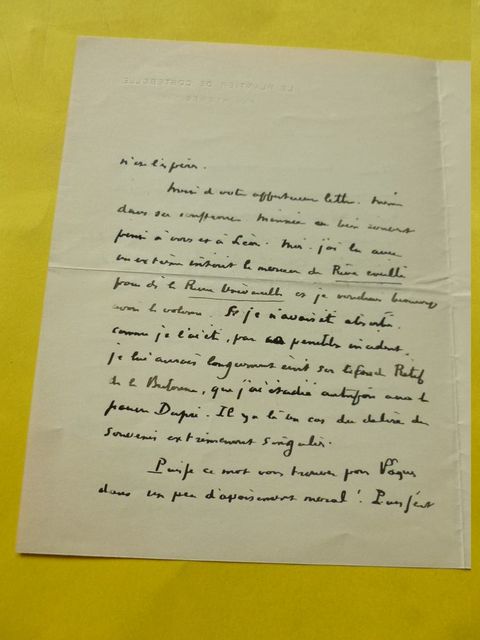 LE PLANTIER DE COSTEBELLE
Merci de votre affectueuse lettre. Même
dans ses souffrances Minnie a bien souvent
pensé à vous et à Léon. Moi, j'ai lu avec
un extrême intérêt le morceau du Rêve éveillé
paru ds la Revue Universelle et je voudrais beaucoup
avoir le volume. Si je n'avais été absorbé,
comme je l'ai été, par ce pénible incident,
je lui aurais longuement écrit sur le Rétif
de la Bretonne, que j'ai étudié autrefois avec le
pauvre Dupré. Il y a là un cas du délire du
souvenir extrêmement singulier.
Puisse ce mot vous trouver pour Pâques
dans un peu d'apaisement moral !